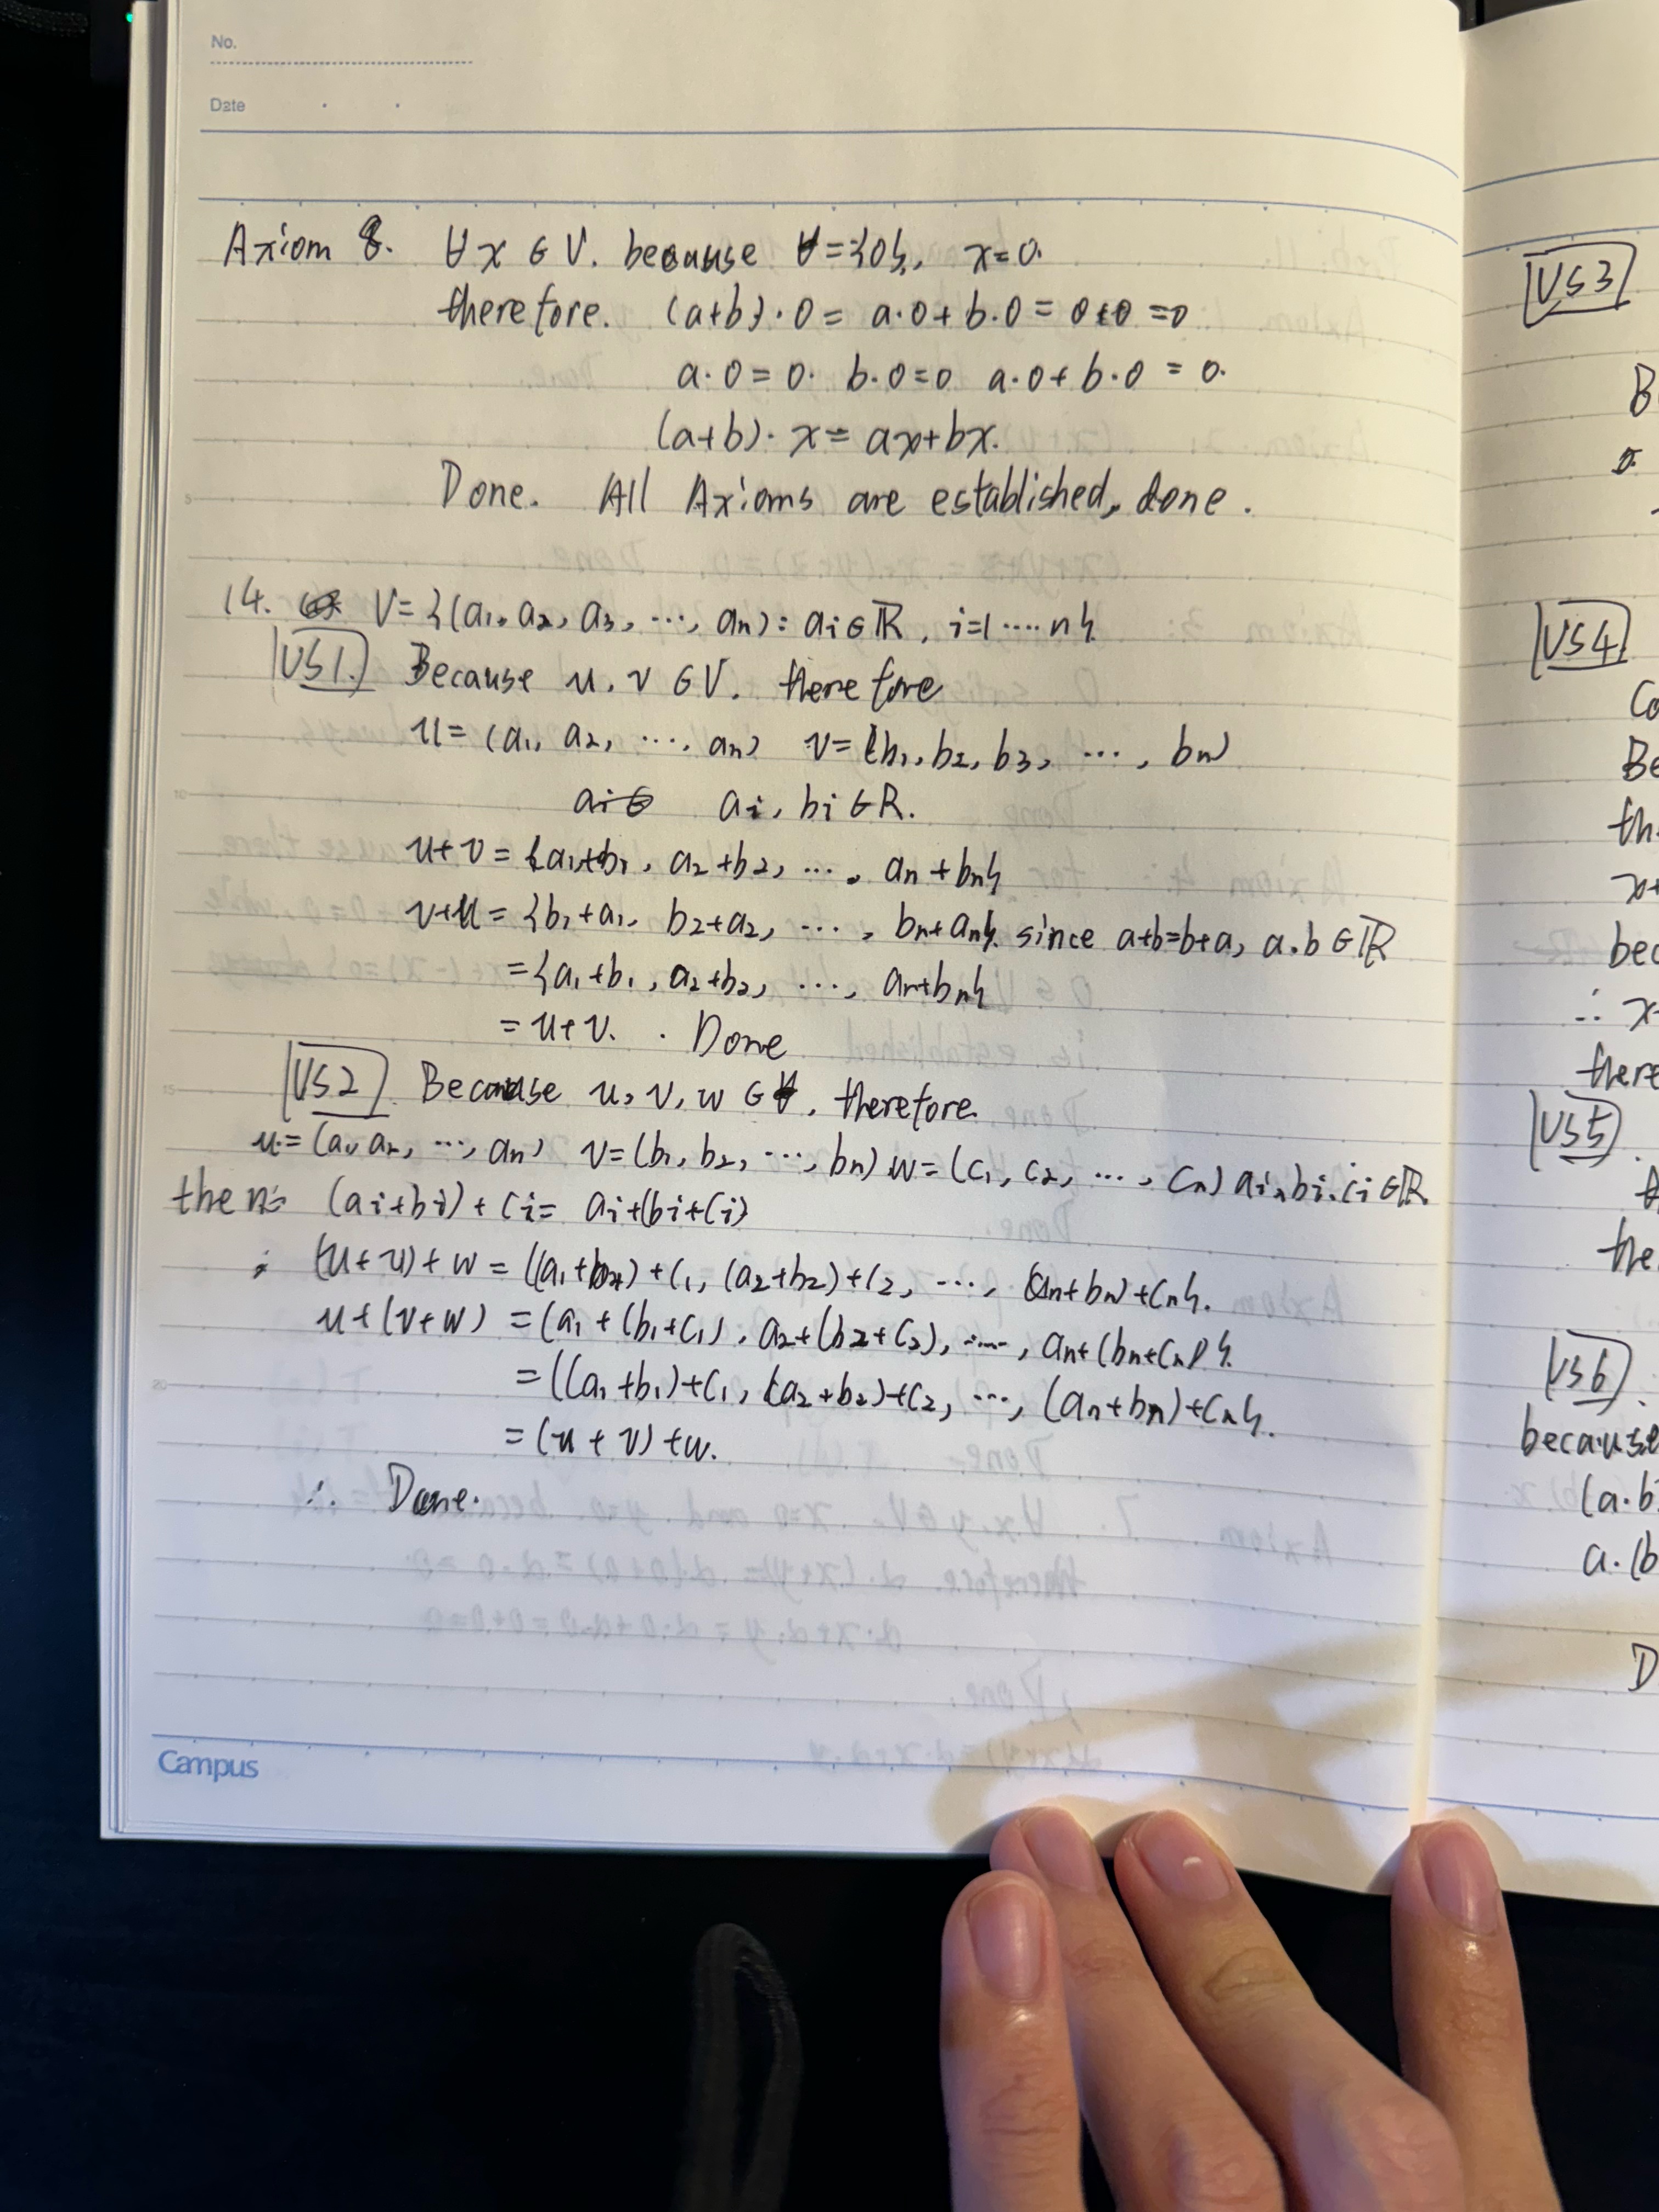 No.
Date
Axiom 8. ∀x∈V. because V={0}, x=0.
therefore. (a+b)·0 = a·0+b·0 = 0+0 =0
a·0=0. b·0=0 a·0+b·0 = 0.
(a+b)·x= ax+bx.
Done. All Axioms are established, done.
14. V={(a1, a2, a3, ..., an): ai∈R, i=1....n}.
VS1. Because u, v ∈V. therefore
u= (a1, a2, ..., an) v=(b1, b2, b3, ..., bn)
ai∈ ai, bi∈R.
u+v={a1+b1, a2+b2, ..., an+bn}
v+u={b1+a1, b2+a2, ..., bn+an}. since a+b=b+a, a.b∈R
={a1+b1, a2+b2, ..., an+bn}
=u+v. . Done
VS2. Because u, v, w ∈V, therefore.
u=(a1, a2, ..., an) v=(b1, b2, ..., bn) w=(c1, c2, ..., cn) ai, bi, ci∈R
then: (ai+bi)+ci= ai+(bi+ci)
∴ (u+v)+w = ((a1+b1)+c1, (a2+b2)+c2, ..., (an+bn)+cn}.
u+(v+w) =(a1+(b1+c1), a2+(b2+c2), ..., an+(bn+cn)}.
=((a1+b1)+c1, (a2+b2)+c2, ..., (an+bn)+cn}.
=(u+v)+w.
∴ Done.
Campus
VS3
VS4
Be
th
x+
bec
∴ x
there
VS5
the
VS6
because
(a·b
a.(b
D